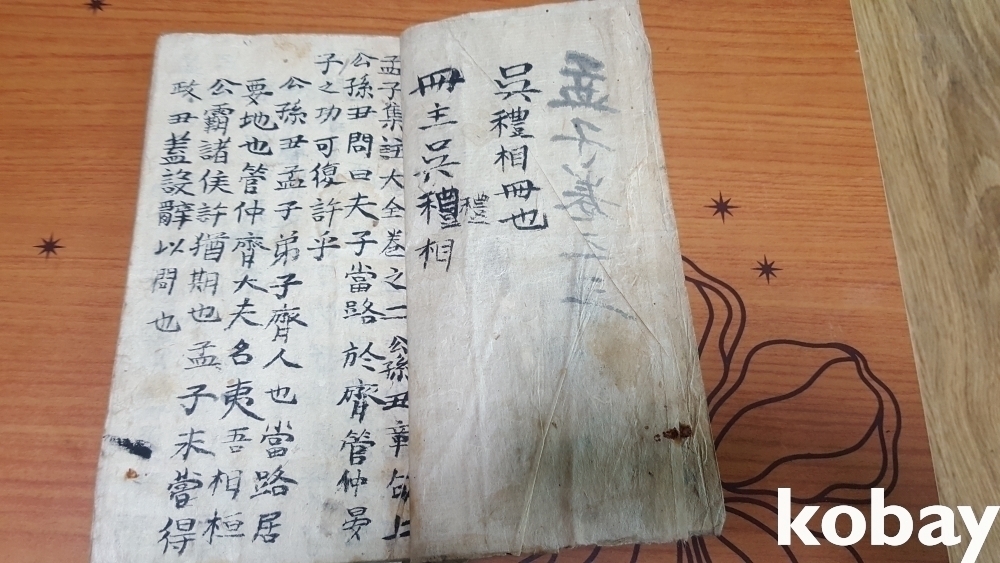 孟子卷之
吳禮相冊也
禮
冊主吳禮相
孟子集註大全卷之二 公孫丑章句上
公孫丑問曰夫子當路於齊管仲晏
子之功可復許乎
公孫丑孟子弟子齊人也當路居
要地也管仲齊大夫名夷吾相桓
公霸諸侯許猶期也孟子未嘗得
政丑蓋設辭以問也
kobay